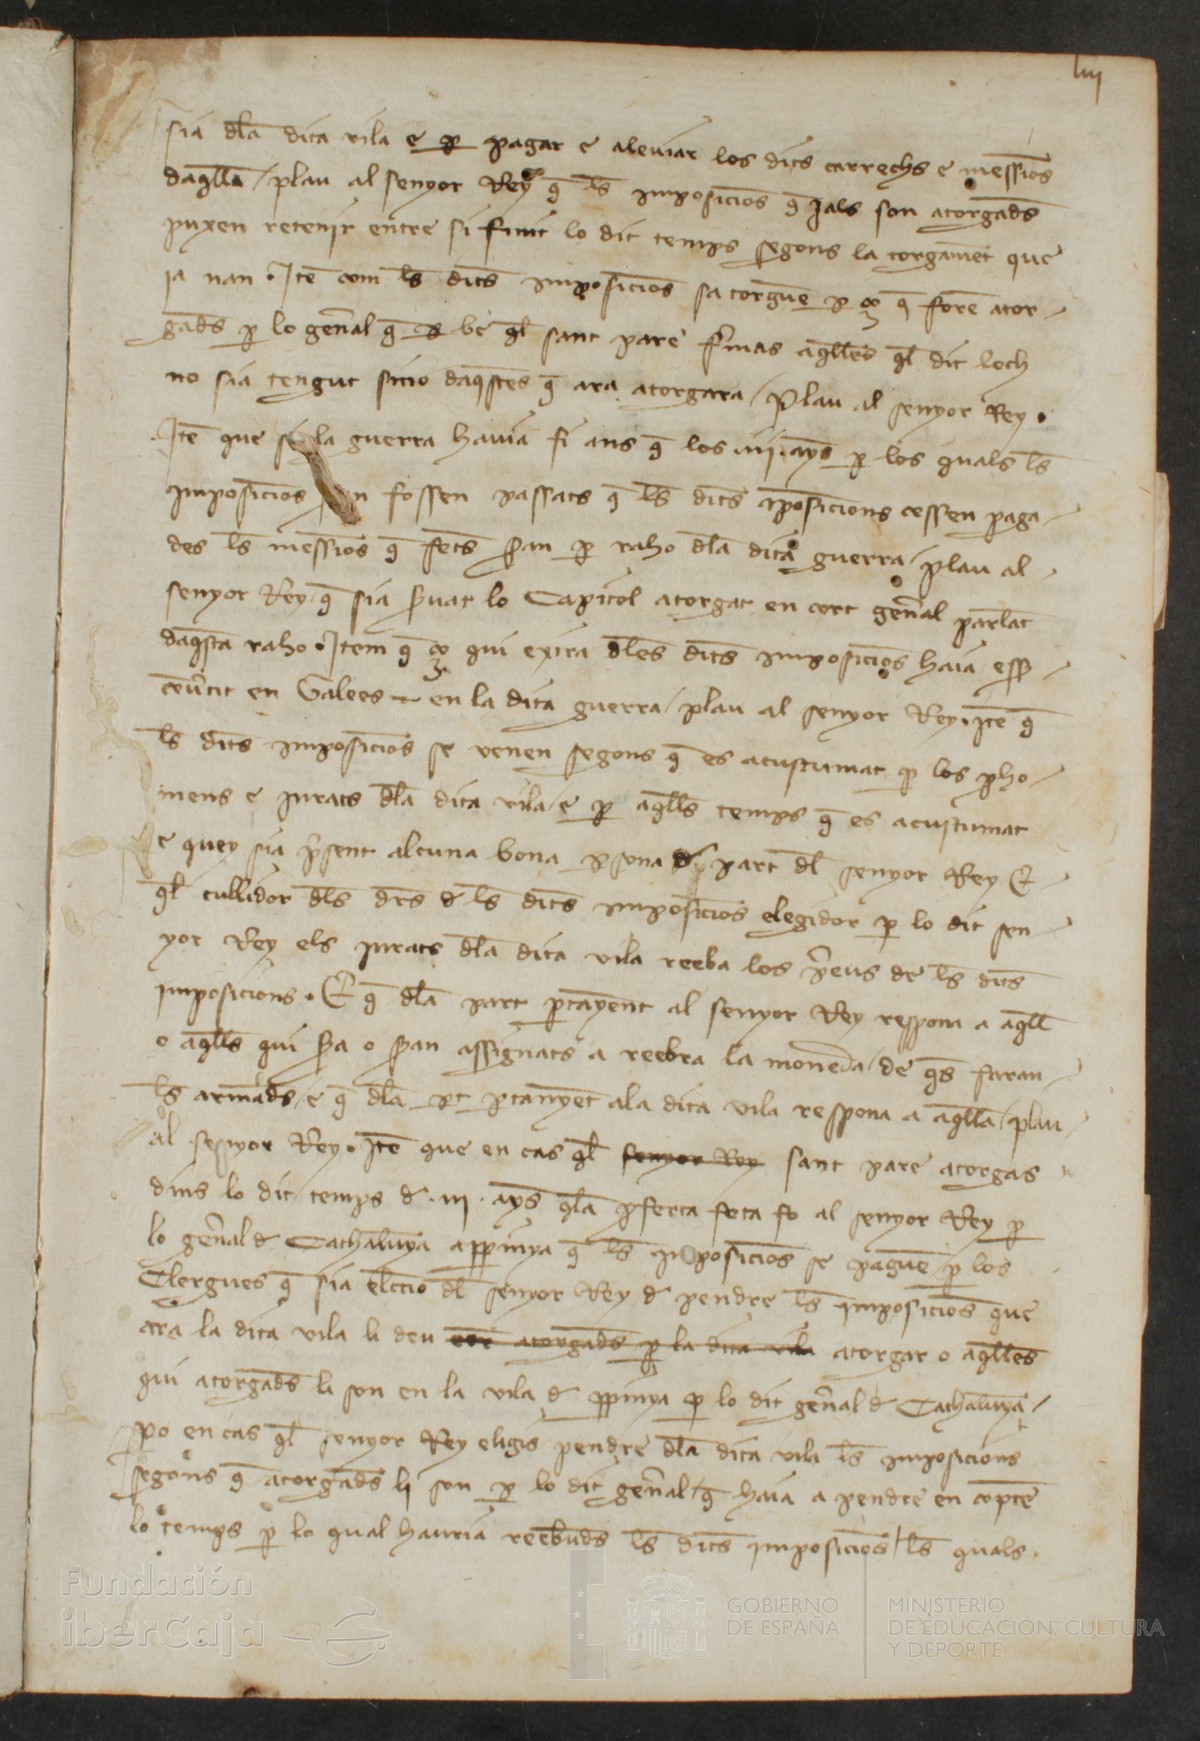 liiij
sia dla dita vila e p pagar e aleuiar los dits carrechs e messions
daqlla / plau al senyor Rey q ls imposicions q jals son atorgads
puxen retenir entre si finit lo dit temps segons la torgamet que
ja nan · Ite com ls dits imposicios sa torguen p ço q foren ator-
gads p lo genal q be ql sant pare fmas aqlles ql dit loch
no sia tengut sino daqstes q ara atorgara / Plau al senyor Rey ·
Ite que si la guerra hauia fi ans q los .iij. ays p los quals ls
imposicios fossen passats q ls dits iposicions cessen paga-
des ls messios q fets seran p raho dla dita guerra / plau al
senyor Rey / q sia seruat lo Capitol atorgat en cort genal parlat
daqsta raho · Item q ço qui exira dles dits imposicios haia esser
couertit en Galees en la dita guerra / plau al senyor Rey · Ite q
ls dits imposicios se venen segons q es acustumat p los pho-
mens e jurats dla dita vila / e p aqlls temps q es acustumat
e quey sia psent alcuna bona psona de part dl senyor Rey E
ql cullidor dls drs d ls dits imposicios elegidor p lo dit sen-
yor Rey els jurats dla dita vila reeba los preus de ls dits
imposicions · E q dla part ptayent al senyor Rey respona a aqll
o aqlls qui sera o seran assignats a reebra la moneda / de qs faran
ls armads / e q dla pt ptanyet ala dita vila respona a aqlla / plau
al senyor Rey · Ite que en cas ql senyor Rey sant pare atorgas
dins lo dit temps d .iij. ays qla pferta feta fo al senyor Rey p
lo genal d Cathaluya appinya q ls imposicios se paguen p los
Clergues q sia eleccio dl senyor Rey d pendre ls imposicios que
ara la dita vila li deu atorgads p la dita vila atorgar o aqlles
qui atorgads li son en la vila d ppinya p lo dit genal d Cathaluya /
po en cas ql senyor Rey eligis pendre dla dita vila ls imposicions
segons q atorgads li son p lo dit genal / q haia a pendre en compte
lo temps p lo qual hauria reebuds ls dits imposicios / ls quals
Fundación
iberCaja
GOBIERNO
DE ESPAÑA
MINISTERIO
DE EDUCACIÓN, CULTURA
Y DEPORTE